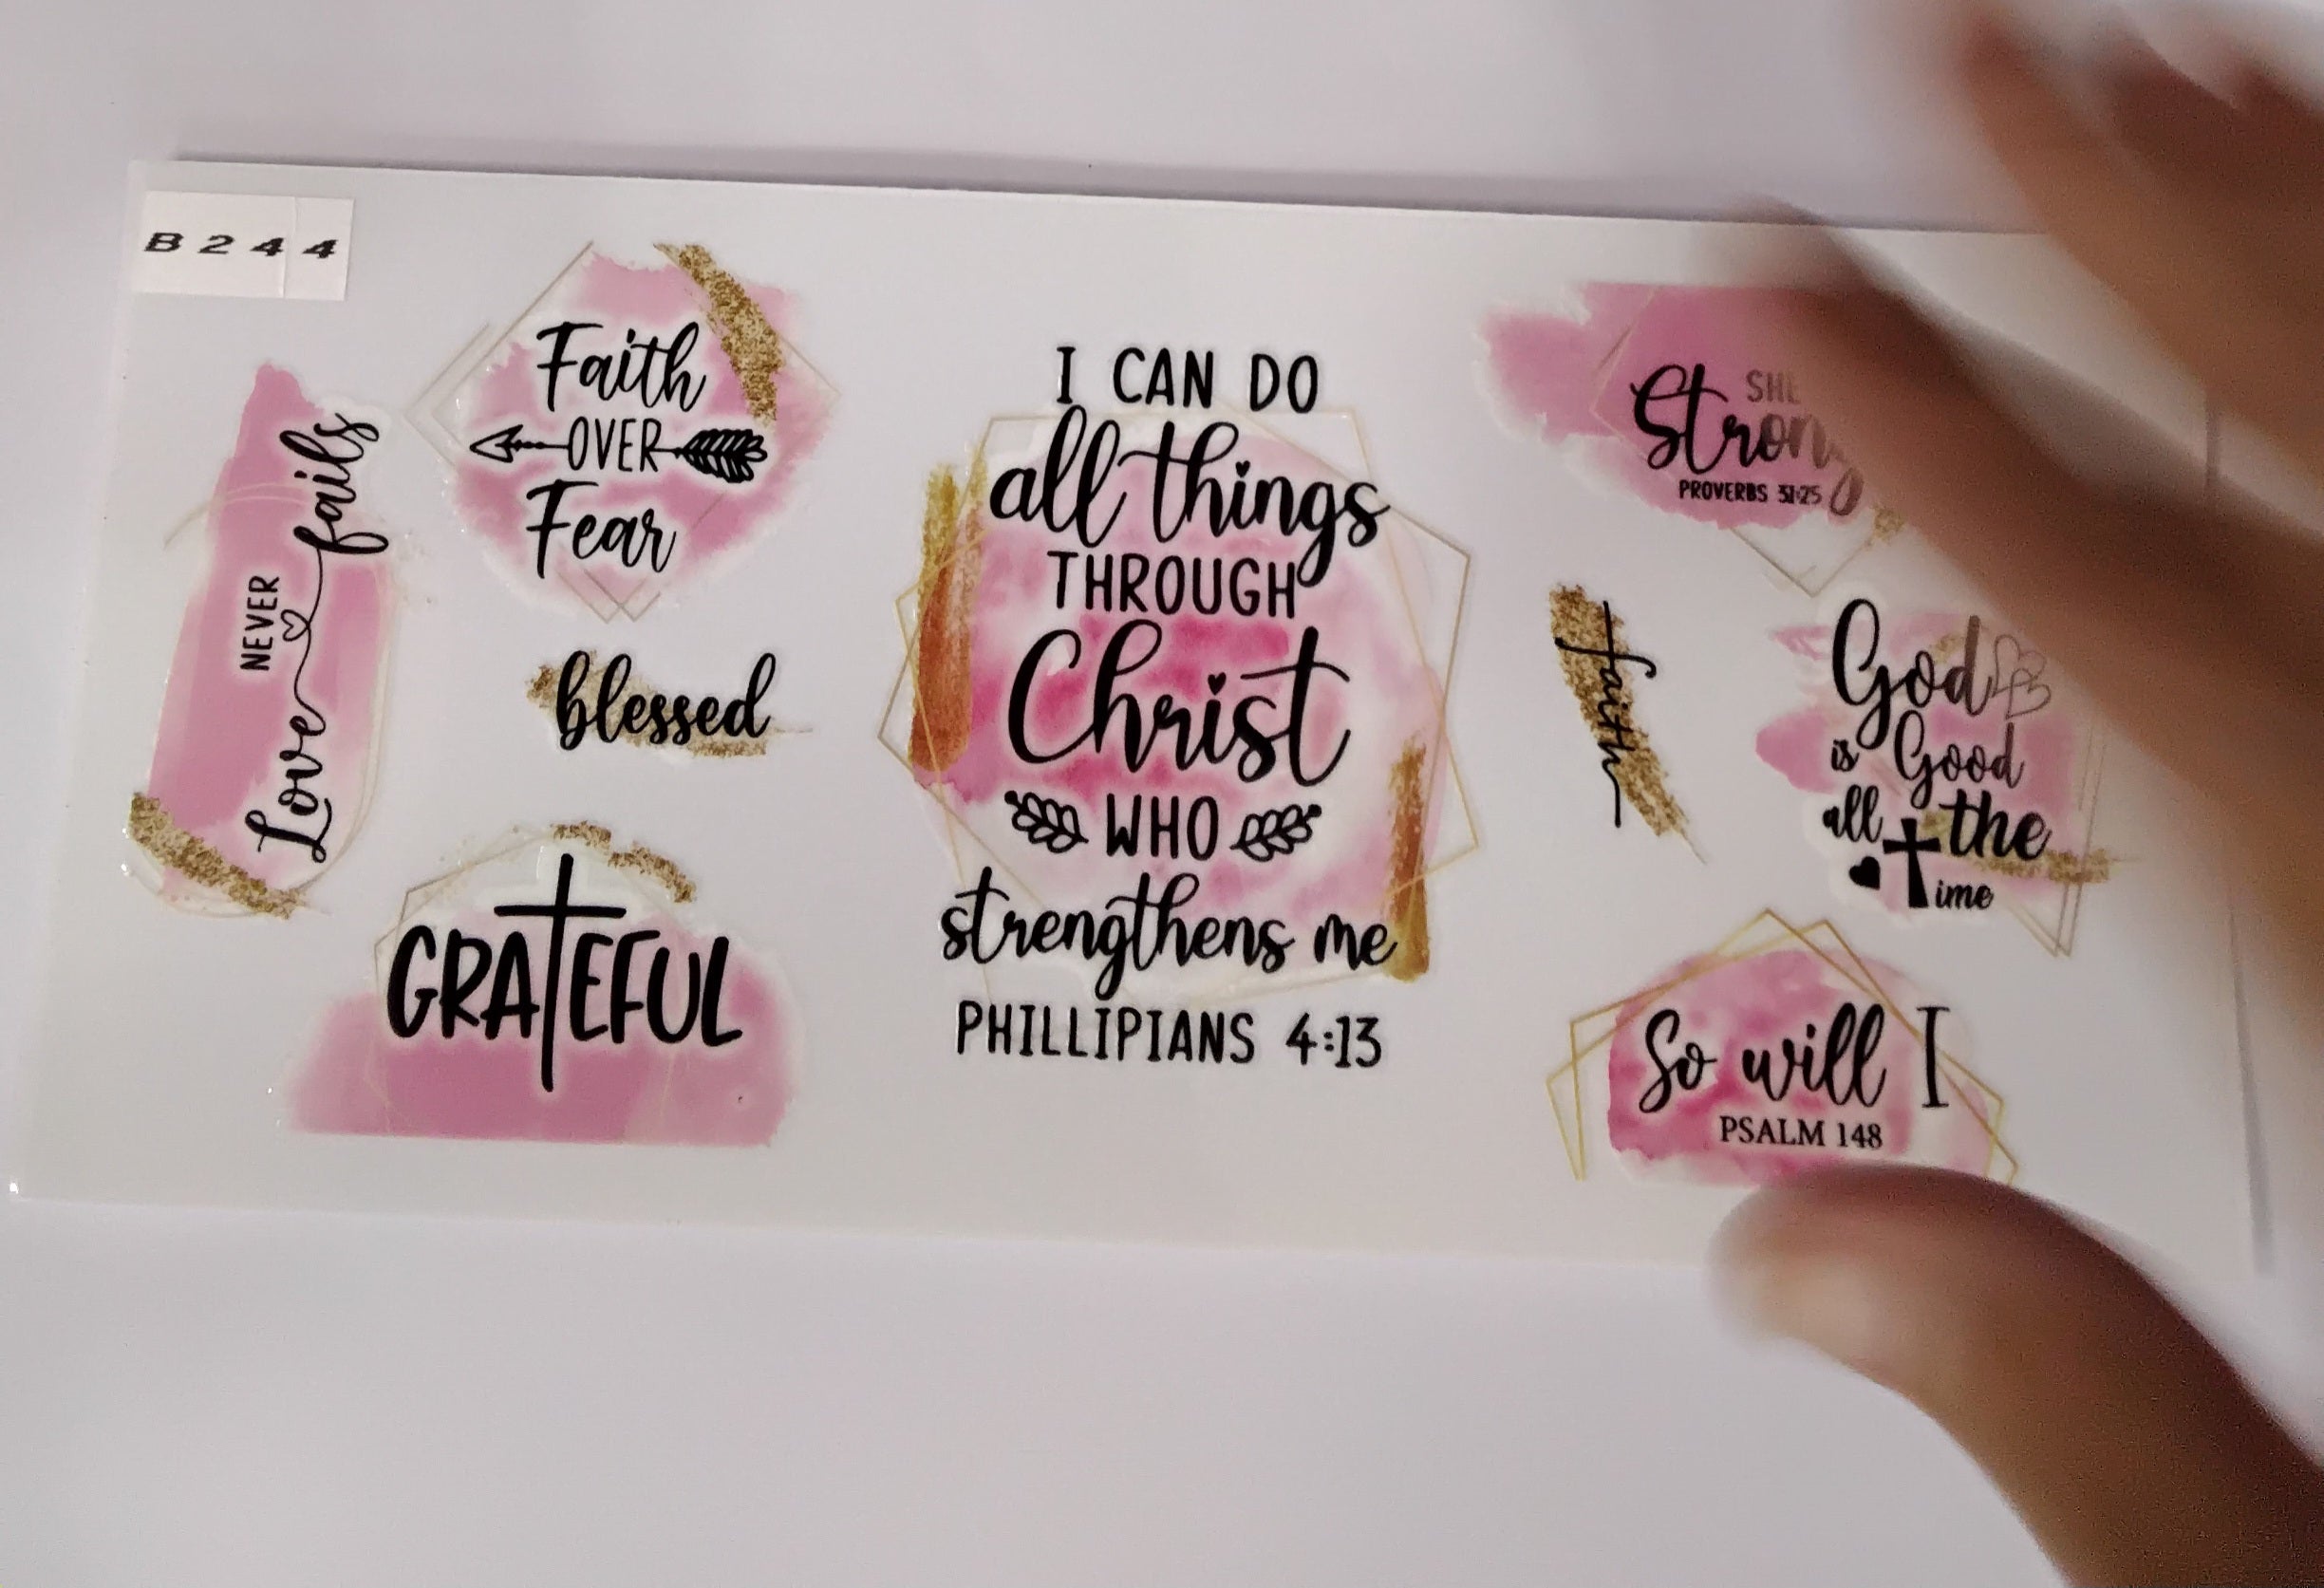 B 2 4 4
Love NEVER fails
Faith
OVER
Fear
blessed
GRATEFUL
I CAN DO
all things
THROUGH
Christ
WHO
strengthens me
PHILLIPIANS 4:13
SHE
Strong
PROVERBS 31:25
faith
God
is Good
all the
time
So will I
PSALM 148